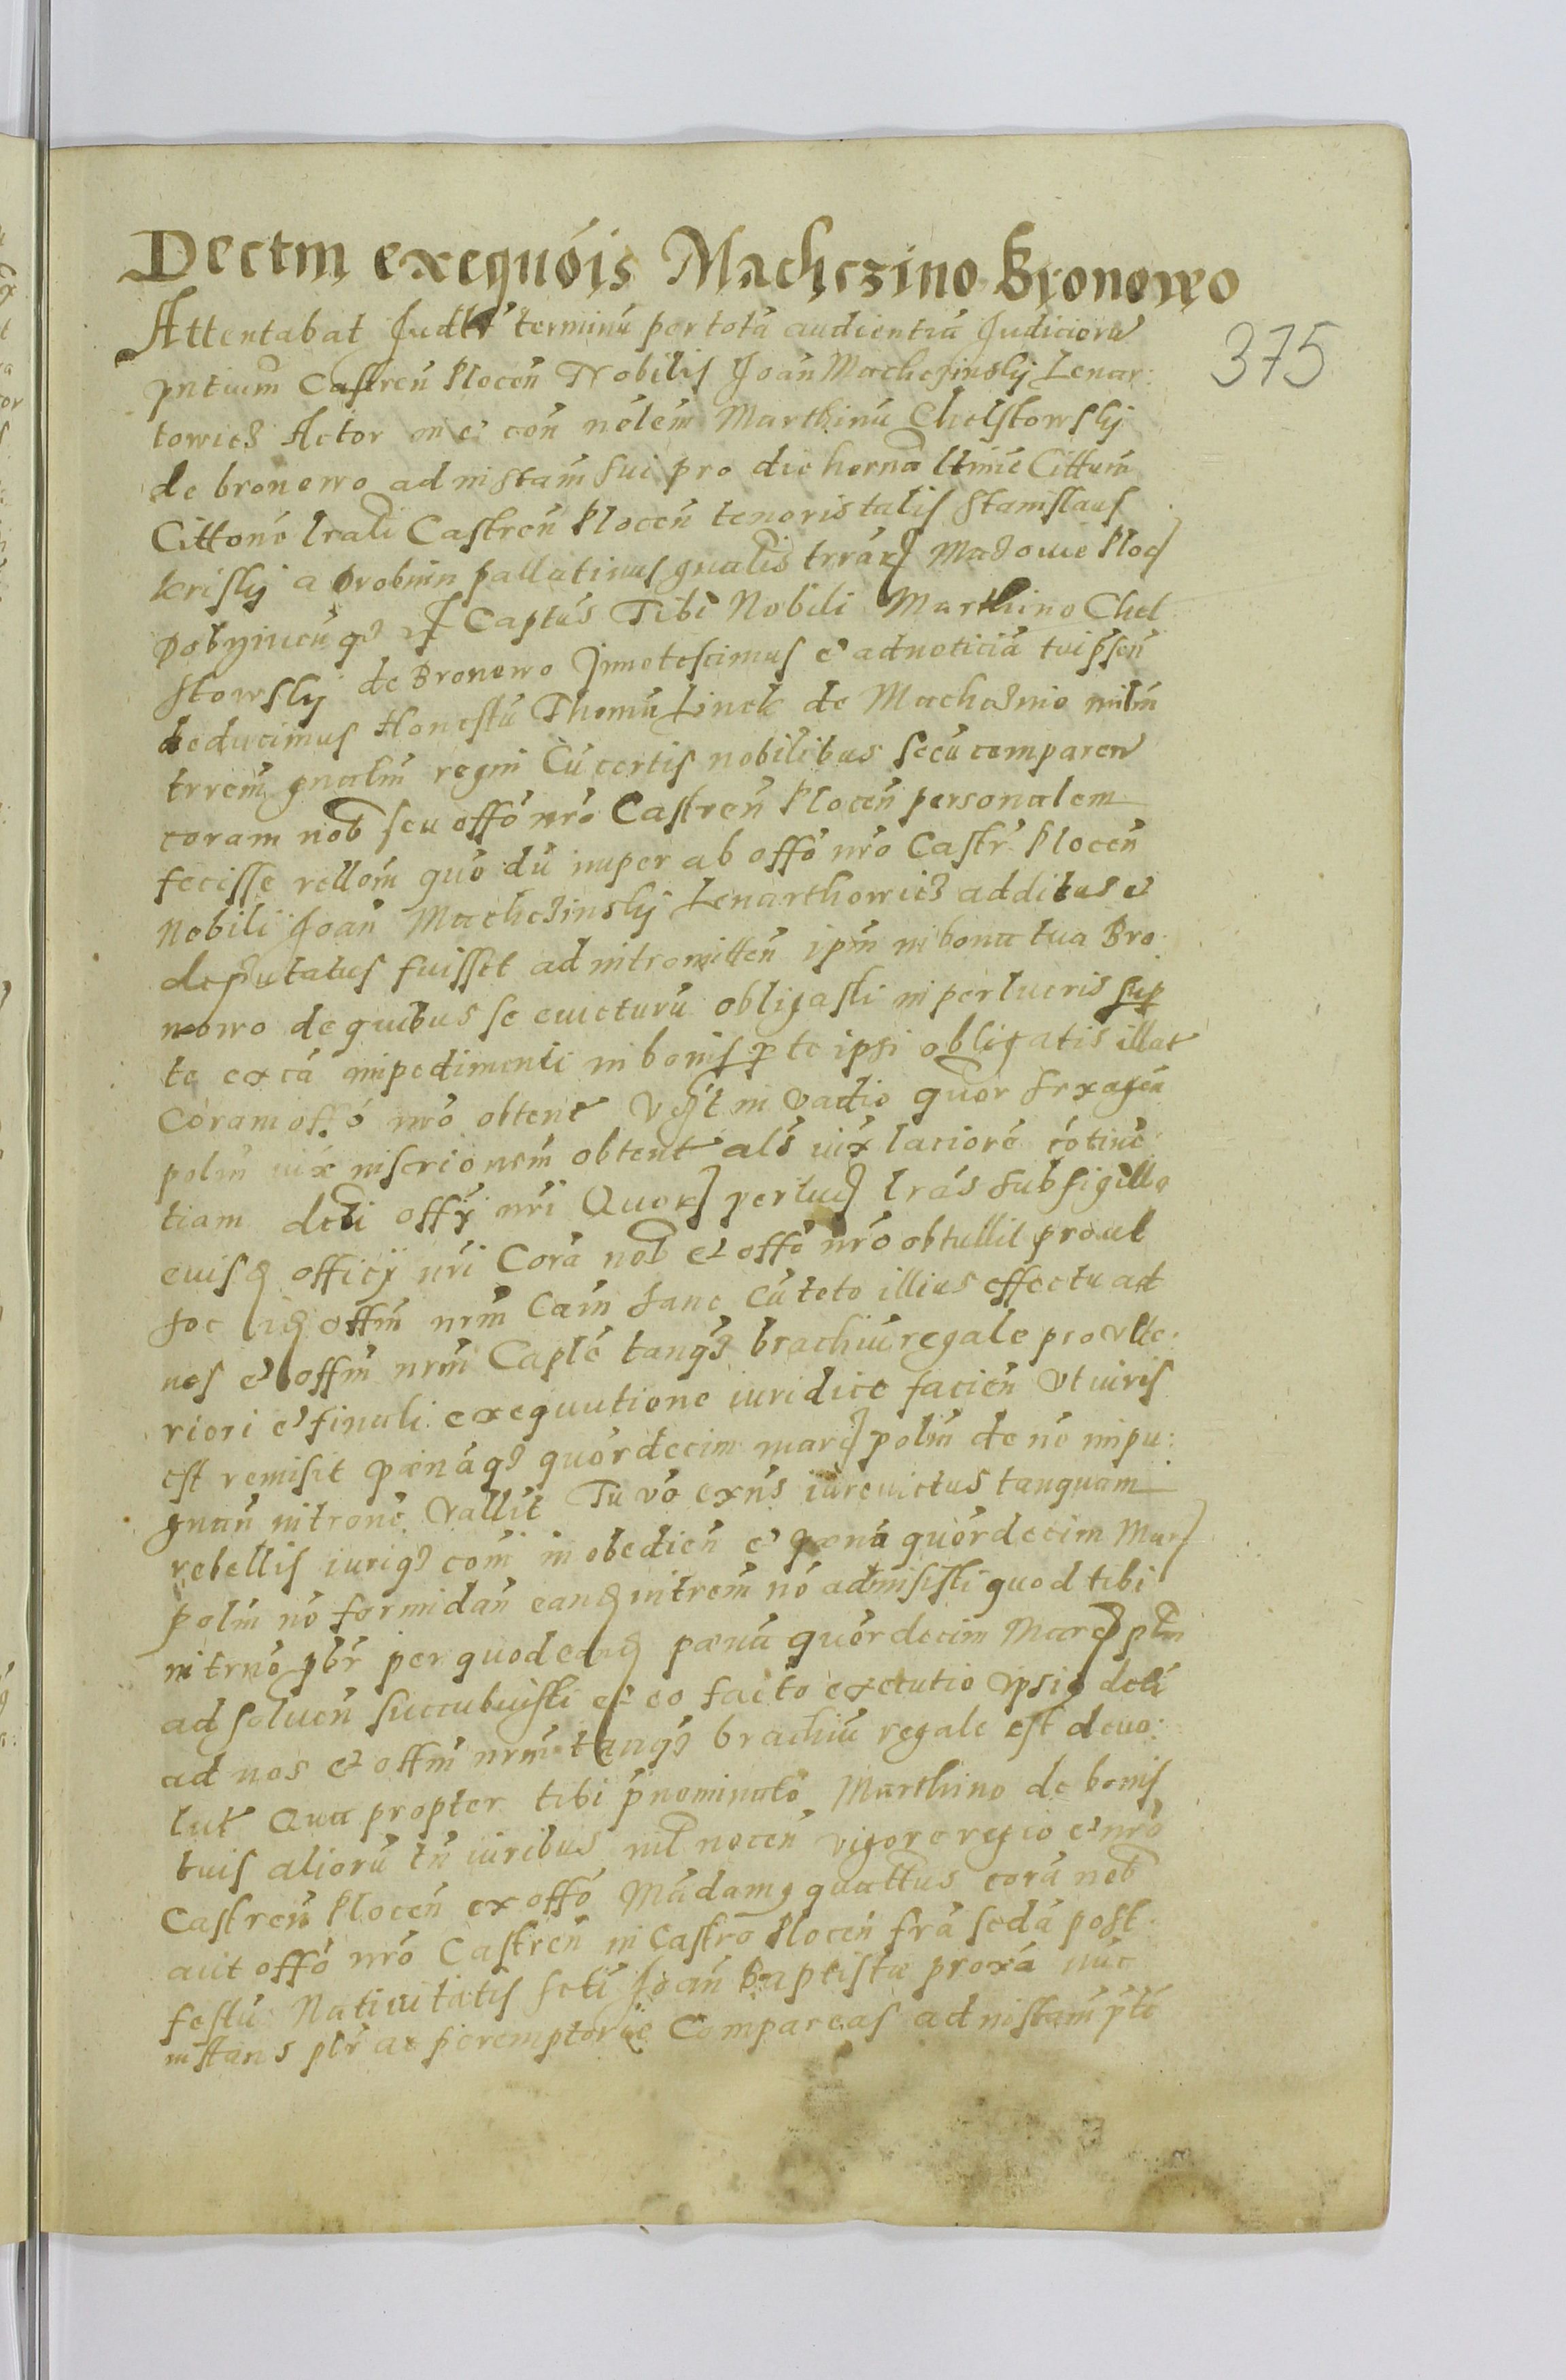 Dectm exequóis Machczino Bronowo
375
Attentabat Judtr terminũ per totã audientiã Judiciorũ
pntium Castreñ Ploceñ Nobilis Joañ Machczinsky Lenar:
towicz Actor in et coñ nólem Marthinũ Chelstowsky
de bronowo ad instam sui pro die herna ltimie Cittum
Cittoné lrali Castreñ Plocen tenoris talis Stanislaus
kriský a Drobnin pallatinus gnalis trrar Mazowie Ploc
Dobzinenqз Captus Tibi Nobili Marthino Chel
stowsky de Bronowo Jnnotescimus et ad noticiã tui psen
deducimus Honestũ Thomã Linek de Machczino milm
trrem gnalm regni Cũ certis nobilibus secũ comparen
coram nob seu offó nró Castreñ Plocen personalem
fecisse rellom quó dũ nuper ab offó nró Castr Plocen
Nobili Joañ Machczinsky Lenarthowicz additus et
deputatus fuisset ad intromitten ipm in bona tua Bro
nowo de quibus se euicturũ obligasti in perlucris sup
te ex cã impedimenti in bonis p te ipsi obligatis illat
Coram offó nró obtent in vadio quor sexagen
polm iux inscrionem obtent als iux laciore cotine
tiam dcti offy nri Quor perluc lras sub sigillo
euisq officÿ nri Corã nob et offó nró obtullit prout
hoc idq offm nrm Cam hanc Cũ toto illius effectu ad
nos et offm nrm Caple tanqз brachiũ regale pro vlte
riori et finali exequutione iuridice facien vt iuris
est remisit pænáqз quordecim marc polm de nó impu:
gnañ introné vallit Tu vó exñs iure victus tanquam
rebellis iuriqз com in obedien et pæna quordecim Mar
polm nó formidañ eanq intrem nó admisisti quod tibi
intrnó pbr per quod eanq pæna quordecim Marc plm
ad soluen succubuisti et eo facto exctutio ipsiq dcti
ad nos et offm nrm tanqз brachiũ regale est deuo:
lut Qua propter tibi pnominato Marthino de bonis
tuis aliorũ tñ iuribus nil nocen vigore regio et nró
Castren Plocen ex offó Mãdamq quattus corã nob
aut offó nró Castren in Castro Plocen frã sedã post
festũ Natiuitatis scti Joañ Baptistæ proxã nũc
instans pltr ac peremptorie Compareas ad instam pte